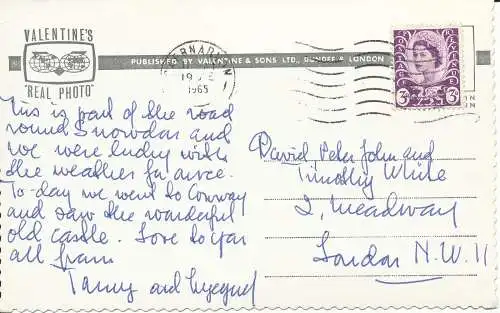 VALENTINE'S
"REAL PHOTO"
PUBLISHED BY VALENTINE & SONS LTD., DUNDEE & LONDON
1965
3D 3D
This is part of the road
round Snowdon and
we were lucky with
the weather for once.
To-day we went to Conway
and saw the wonderful
old castle. Love to you
all from
and
David, Peter, John and
Timothy White
2, Meadway
London N.W. 11